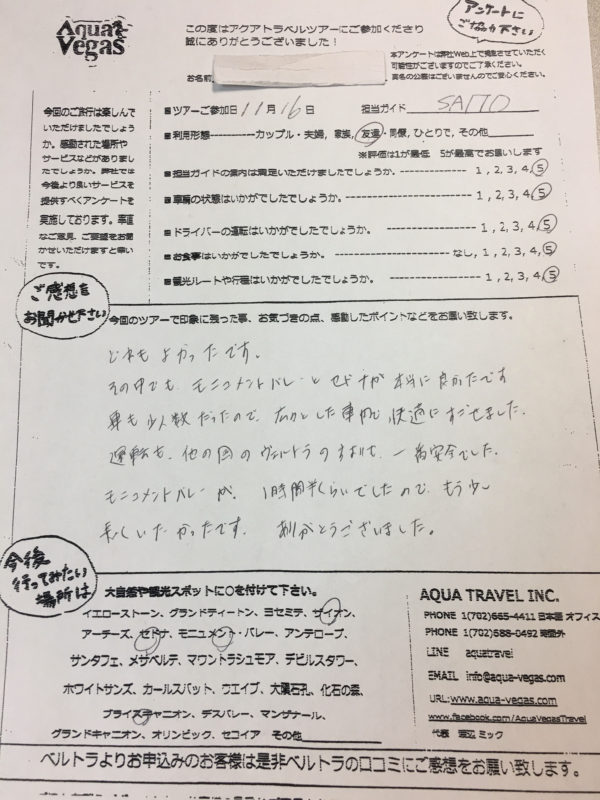 Aqua Vegas
この度はアクアトラベルツアーにご参加くださり
誠にありがとうございました！
アンケートに
ご協力下さい
本アンケートは弊社Web上で発表させていただく
可能性がございますのでご了承ください。
実名の公表はございませんのでご安心ください。
お名前
今回のご旅行は楽しんで
いただけましたでしょう
か。感動された場所や
サービスなどがありまし
たでしょうか。弊社では
今後より良いサービスを
提供すべくアンケートを
実施しております。率直
なご意見、ご要望をお聞
かせいただけますと幸い
です。
■ツアーご参加日 11月 16日 担当ガイド SAITO
■利用形態-----------カップル・夫婦, 家族, 友達・同僚, ひとりで, その他
※評価は1が最低 5が最高でお願いします
■担当ガイドの案内は満足いただけましたでしょうか。-------------- 1, 2, 3, 4, 5
■車輌の状態はいかがでしたでしょうか。-------------------------- 1, 2, 3, 4, 5
■ドライバーの運転はいかがでしたでしょうか。-------------------- 1, 2, 3, 4, 5
■お食事はいかがでしたでしょうか。------------------------ なし, 1, 2, 3, 4, 5
■観光ルートや行程はいかがでしたでしょうか。 ------------------- 1, 2, 3, 4, 5
ご感想を
お聞かせ下さい
今回のツアーで印象に残った事、お気づきの点、感動したポイントなどをお願い致します。
どれもよかったです。
その中でも、モニュメントバレーとセドナが本当に良かったです
車も少人数だったので、広々とした車内で快適にすごせました。
運転も、他の回のヴェルトラの中で、一番安全でした。
モニュメントバレーが、1時間半くらいでしたので、もう少し
長くいたかったです。 ありがとうございました。
今後
行ってみたい
場所は
大自然や観光スポットに○を付けて下さい。
イエローストーン、グランドティートン、ヨセミテ、ザイオン、
アーチーズ、セドナ、モニュメント・バレー、アンテロープ、
サンタフェ、メサベルデ、マウントラシュモア、デビルスタワー、
ホワイトサンズ、カールスバット、ウエイブ、大隕石孔、化石の森、
ブライスキャニオン、デスバレー、マンザナール、
グランドキャニオン、オリンピック、セコイア その他
AQUA TRAVEL INC.
PHONE 1(702)665-4411 日本語 オフィス
PHONE 1(702)688-0492 時間外
LINE aquatravel
EMAIL info@aqua-vegas.com
URL:www.aqua-vegas.com
www.facebook.com/AquaVegasTravel
代表 渡辺 ミック
ベルトラよりお申込みのお客様は是非ベルトラの口コミにご感想をお願い致します。